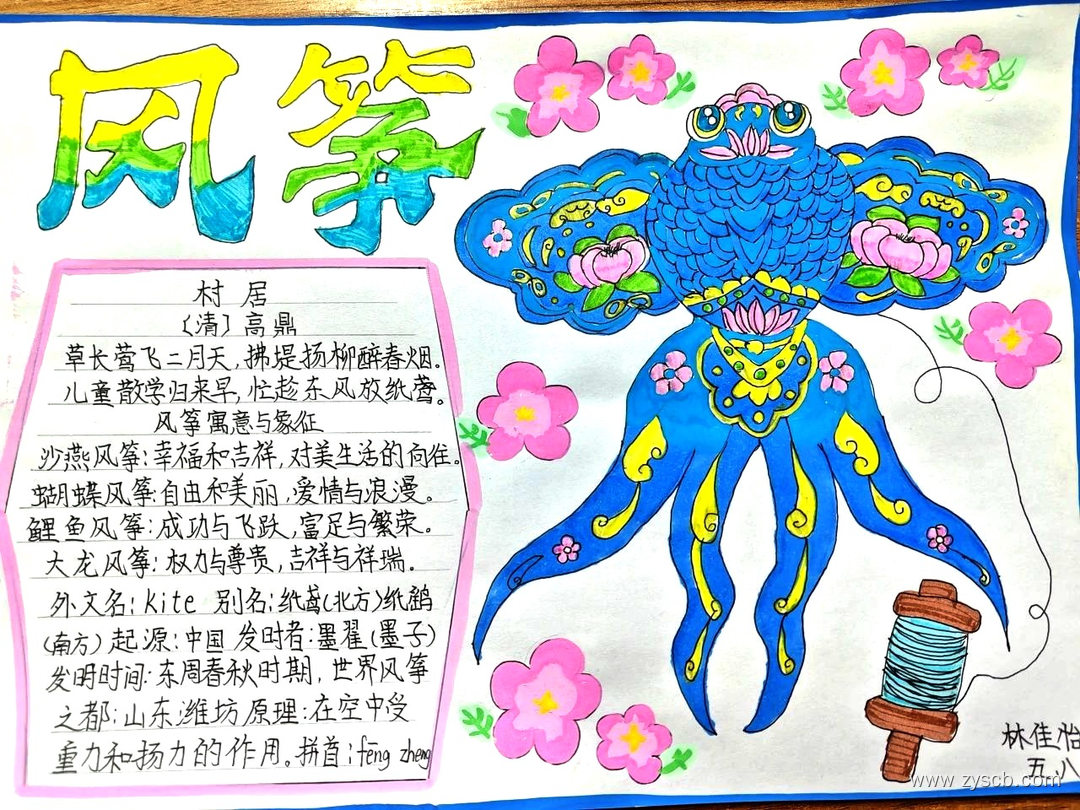 风筝
村居
〔清〕高鼎
草长莺飞二月天，拂堤扬柳醉春烟。
儿童散学归来早，忙趁东风放纸鸢。
风筝寓意与象征
沙燕风筝：幸福和吉祥，对美生活的向往。
蝴蝶风筝：自由和美丽，爱情与浪漫。
鲤鱼风筝：成功与飞跃，富足与繁荣。
大龙风筝：权力与尊贵，吉祥与祥瑞。
外文名：kite 别名：纸鸢(北方)纸鹞
(南方)起源：中国 发时者：墨翟(墨子)
发明时间：东周春秋时期，世界风筝
之都：山东潍坊原理：在空中受
重力和扬力的作用。拼首：fēng zheng
林佳怡
五.八
www.zyscb.com